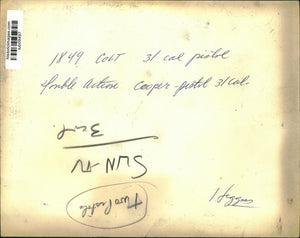 1849 COLT 31 cal pistol
Double Action Cooper-pistol 31 cal.
3 col
SUN-TV
Two Pistols
Higgins